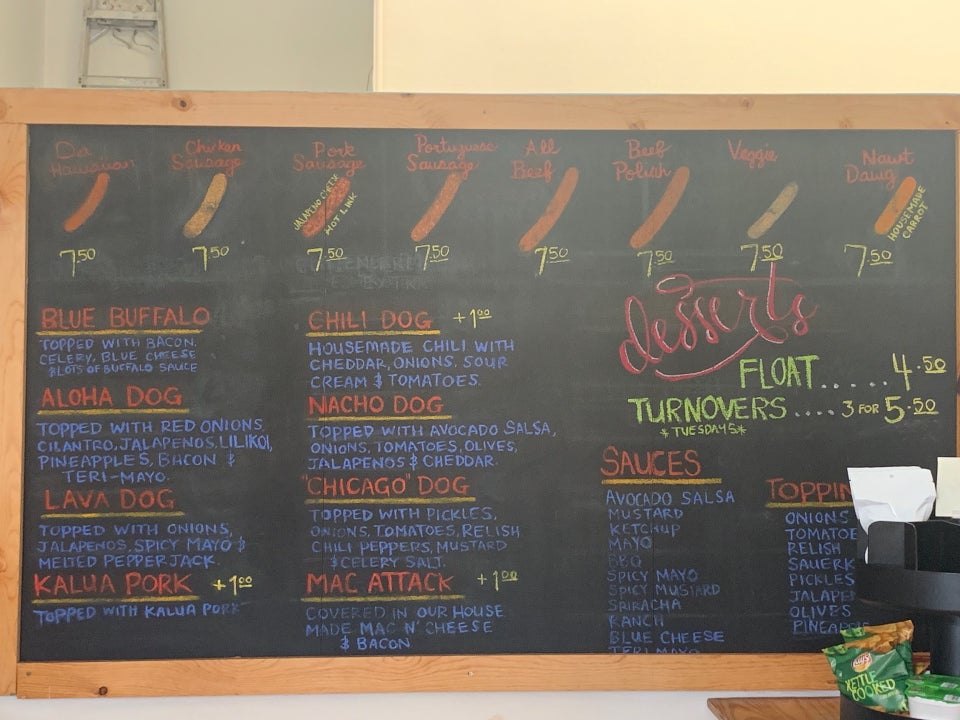 Da Hawaiian
7.50
Chicken Sausage
7.50
Pork Sausage
JALAPENO CHEEK
HOT LINK
7.50
Portuguese Sausage
7.50
All Beef
7.50
Beef Polish
7.50
Veggie
7.50
Nawt Dawg
HOUSEMADE CARROT
7.50
BLUE BUFFALO
TOPPED WITH BACON,
CELERY, BLUE CHEESE
& LOTS OF BUFFALO SAUCE
ALOHA DOG
TOPPED WITH RED ONIONS
CILANTRO, JALAPENOS, LILIKOI,
PINEAPPLES, BACON &
TERI-MAYO.
LAVA DOG
TOPPED WITH ONIONS,
JALAPENOS, SPICY MAYO &
MELTED PEPPERJACK.
KALUA PORK +1.00
TOPPED WITH KALUA PORK
CHILI DOG +1.00
HOUSEMADE CHILI WITH
CHEDDAR, ONIONS, SOUR
CREAM & TOMATOES.
NACHO DOG
TOPPED WITH AVOCADO SALSA,
ONIONS, TOMATOES, OLIVES,
JALAPENOS & CHEDDAR.
"CHICAGO" DOG
TOPPED WITH PICKLES,
ONIONS, TOMATOES, RELISH
CHILI PEPPERS, MUSTARD
& CELERY SALT.
MAC ATTACK +1.00
COVERED IN OUR HOUSE
MADE MAC N' CHEESE
& BACON
desserts
FLOAT...... 4.50
TURNOVERS .... 3 FOR 5.50
*TUESDAYS*
SAUCES
AVOCADO SALSA
MUSTARD
KETCHUP
MAYO
BBQ
SPICY MAYO
SPICY MUSTARD
SRIRACHA
RANCH
BLUE CHEESE
TERI MAYO
TOPPIN
ONIONS
TOMATOE
RELISH
SAUERK
PICKLES
JALAPE
OLIVES
PINEAPPLE
Lay's
KETTLE
COOKED